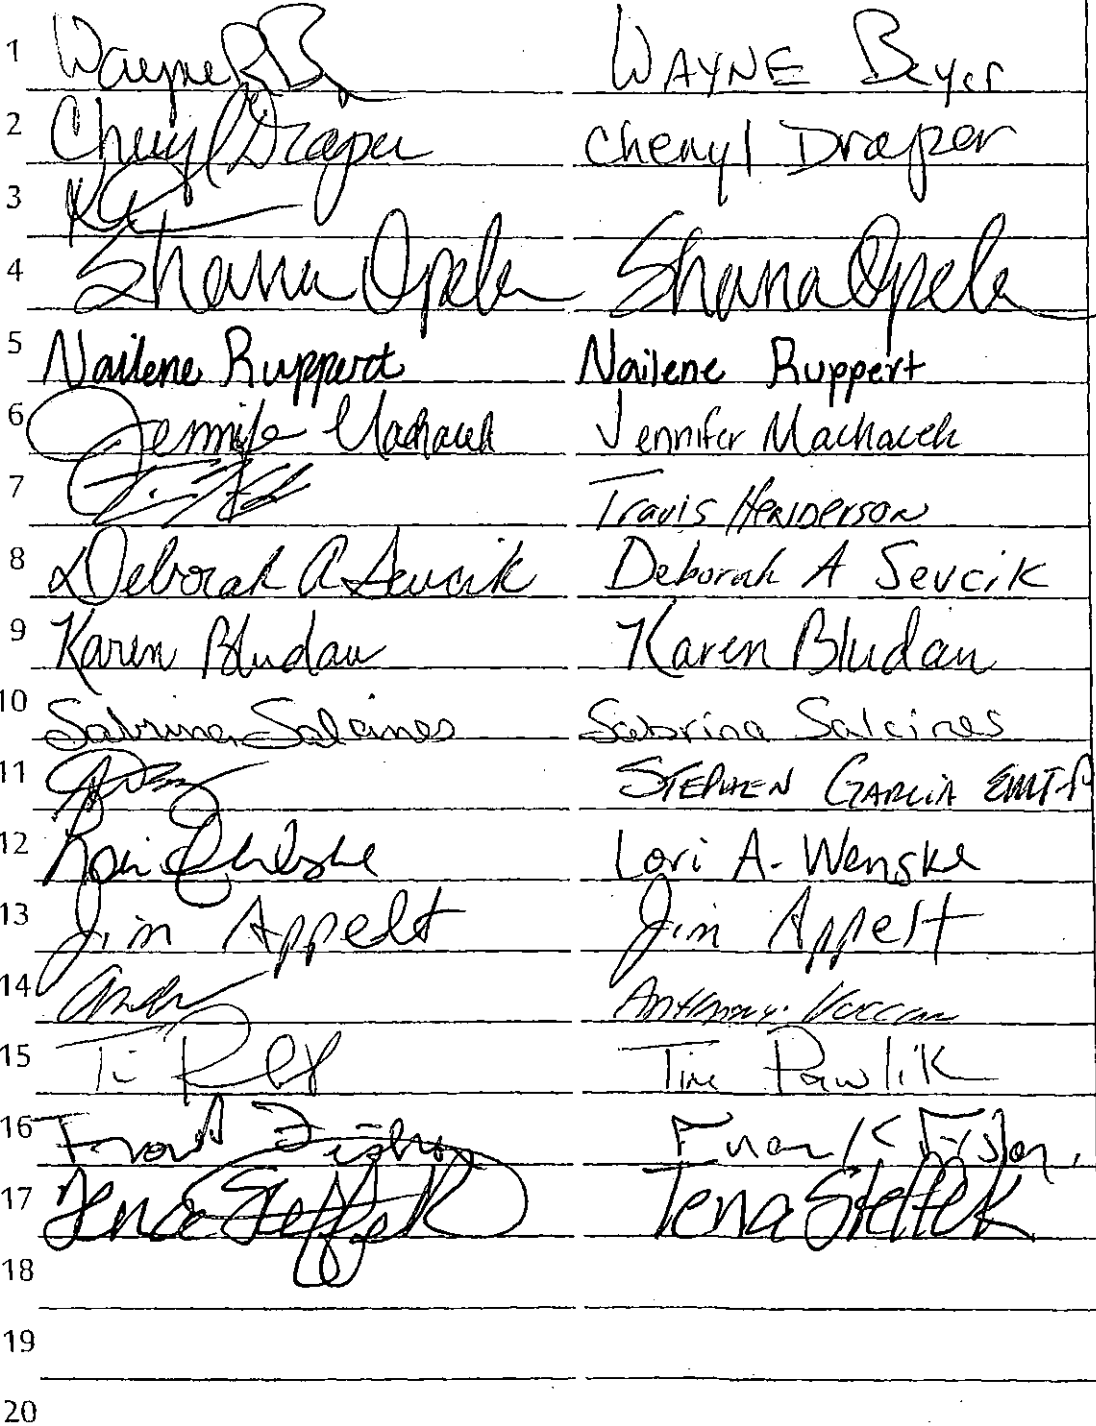 1 Wayne R B. WAYNE Beyer
2 Cheryl Draper Cheryl Draper
3
4 Shana Opela Shana Opela
5 Nailene Ruppert Nailene Ruppert
6 Jennifer Machacek Jennifer Machacek
7 Travis HENDERSON
8 Deborah A Sevcik Deborah A Sevcik
9 Karen Bludau Karen Bludau
10 Sabrina Salcines Sabrina Salcines
11 STEPHEN GARCIA EMT-P
12 Lori A. Wenske
13 Jim Appelt Jim Appelt
14 Anthony
15 Tim Pawlik
16 Frank Frank
17 Tena Steffek Tena Steffek
18
19
20